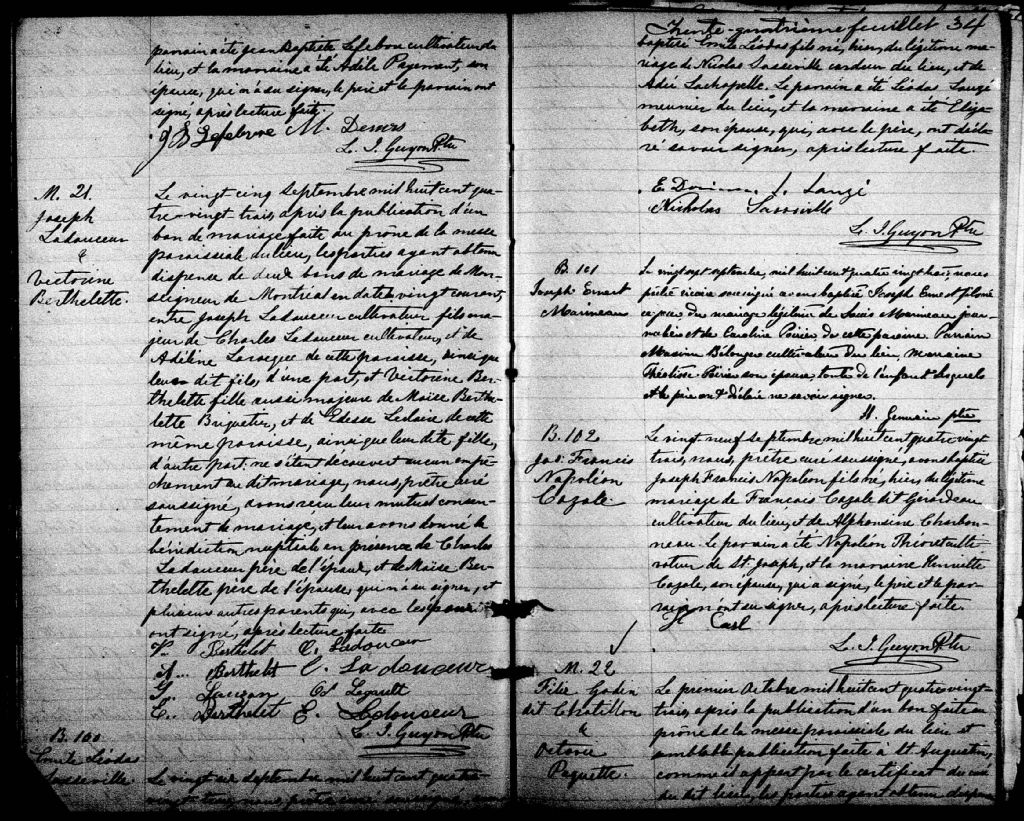 parrain a été Jean Baptiste Lefebvre cultivateur du
lieu, et la marraine a été Adèle Payement, son
épouse, qui n'a su signer, le père et le parrain ont
signé, après lecture faite.
J B Lefebvre M. Demers
L. J. Guyon Ptre
M. 21.
Joseph
Ladouceur
&
Victorine
Berthelette.
Le vingt-cinq Septembre mil huit cent qua-
tre-vingt trois, après la publication d'un
ban de mariage faite au prône de la messe
paroissiale du lieu, les parties ayant obtenu
dispense de deux bans de mariage de Mon-
seigneur de Montréal en date vingt courant,
entre Joseph Ladouceur cultivateur, fils ma-
jeur de Charles Ladouceur cultivateur, et de
Adéline de cette paroisse, ainsi que
leur dit fils, d'une part, et Victorine Ber-
thelette fille aussi majeure de Moïse Berthe-
lette Briquetier, et de Edesse Leclaire de cette
même paroisse, ainsi que leur dite fille,
d'autre part: ne s'étant découvert aucun empê-
chement au dit mariage, nous, prêtre curé
soussigné, avons reçu leur mutuel consen-
tement de mariage, et leur avons donné la
bénédiction nuptiale en présence de Charles
Ladouceur père de l'époux, et de Moïse Ber-
thelette père de l'épouse, qui n'a su signer, et
plusieurs autres parents qui, avec les époux
ont signé, après lecture faite.
V. Berthelet O. Ladouceur
A. Berthelet C. Ladouceur
G. Lauzon Legault
E. Berthelet E. Ladouceur
L. J. Guyon Ptre
B. 100
Comile Léodas
Sasseville
Le vingt six septembre mil huit cent quatre-
vingt-trois, nous, prêtre curé soussigné avons
Trente-quatrième feuillet 34
baptisé Comile Léodas fils né, hier, du légitime ma-
riage de Nicolas Sasseville cardeur du lieu, et de
Lachapelle. Le parrain a été Léodas Laugé
meunier du lieu, et la marraine a été Eliza-
beth, son épouse, qui, avec le père, ont décla-
ré savoir signer, après lecture faite.
E. L. Laugé
Nicholas Sasseville
L. J. Guyon Ptre
B. 101
Joseph Ernest
Marineau
Le vingt sept septembre, mil huit cent quatre vingt trois, nous
prêtre vicaire soussigné avons baptisé Joseph Ernest fils né
ce jour du mariage légitime de Louis Marineau jour-
nalier et de Caroline Poirier de cette paroisse. Parrain
Maxime Bélanger cultivateur du lieu, marraine
Poirier son épouse, tante de l'enfant lesquels
et le père ont déclaré ne savoir signer.
H. Germain ptre
B. 102
Jos. Francis
Napoléon
Cazale.
Le vingt neuf septembre mil huit cent quatre vingt
trois, nous, prêtre curé soussigné, avons baptisé
Joseph Francis Napoléon fils né, hier, du légitime
mariage de Francois Cazale dit Girardeau
cultivateur du lieu, et de Alphonsine Charbon-
neau. Le parrain a été Napoléon
de St. Joseph, et la marraine Henriette
Cazale, son épouse, qui a signé, le père et le par-
rain n'ont su signer, après lecture faite.
H Casl
L. J. Guyon Ptre
M. 22
Félix Godin
dit Chatillon
&
Octavie
Paquette.
Le premier Octobre mil huit cent quatre vingt-
trois, après la publication d'un ban faite au
prône de la messe paroissiale du lieu et
semblable publication faite à St Augustin,
comme il appert par le certificat du curé
du dit lieu, les parties ayant obtenu dispense